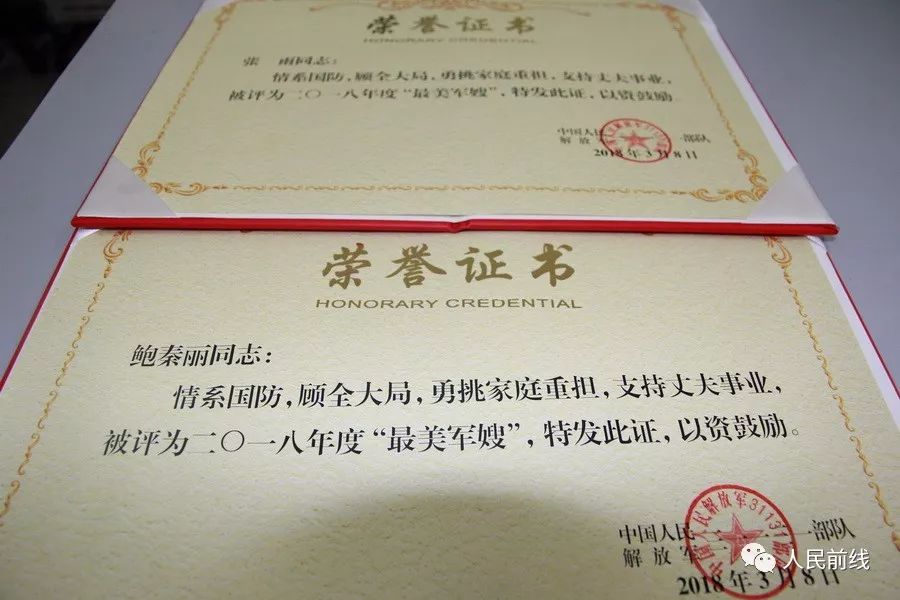 荣誉证书
HONORARY CREDENTIAL
张 雨同志：
情系国防，顾全大局，勇挑家庭重担，支持丈夫事业，
被评为二〇一八年度“最美军嫂”，特发此证，以资鼓励。
中国人民
解放军 一部队
2018年3月8日
荣誉证书
HONORARY CREDENTIAL
鲍秦丽同志：
情系国防，顾全大局，勇挑家庭重担，支持丈夫事业，
被评为二〇一八年度“最美军嫂”，特发此证，以资鼓励。
中国人民
解放军 一部队
中国人民解放军31131部队
2018年3月8日
人民前线